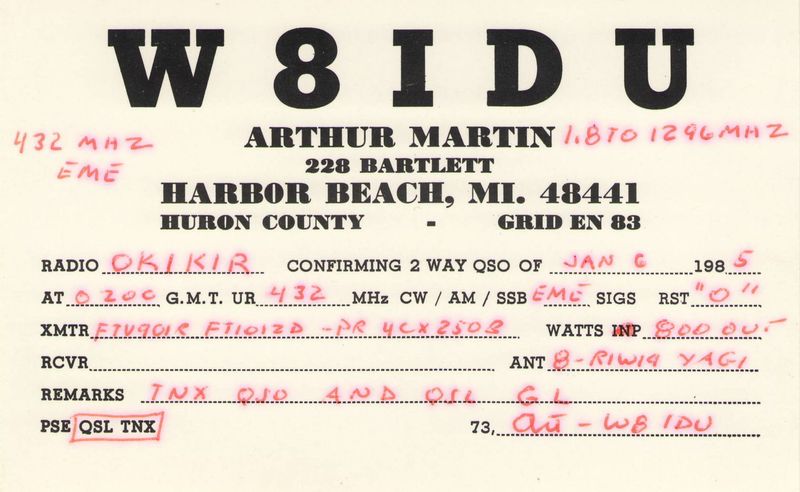 W8IDU
432 MHZ EME
ARTHUR MARTIN 1.8 TO 1296 MHZ
228 BARTLETT
HARBOR BEACH, MI. 48441
HURON COUNTY - GRID EN 83
RADIO OK1KIR CONFIRMING 2 WAY QSO OF JAN 6 1985
AT 0200 G.M.T. UR 432 MHz CW / AM / SSB EME SIGS RST "O"
XMTR FTV901R FT101ZD -PR 4CX250B WATTS INP 800 OUT
RCVR ANT 8-RIW19 YAGI
REMARKS TNX QSO AND QSL GL
PSE QSL TNX 73, Art - W8IDU